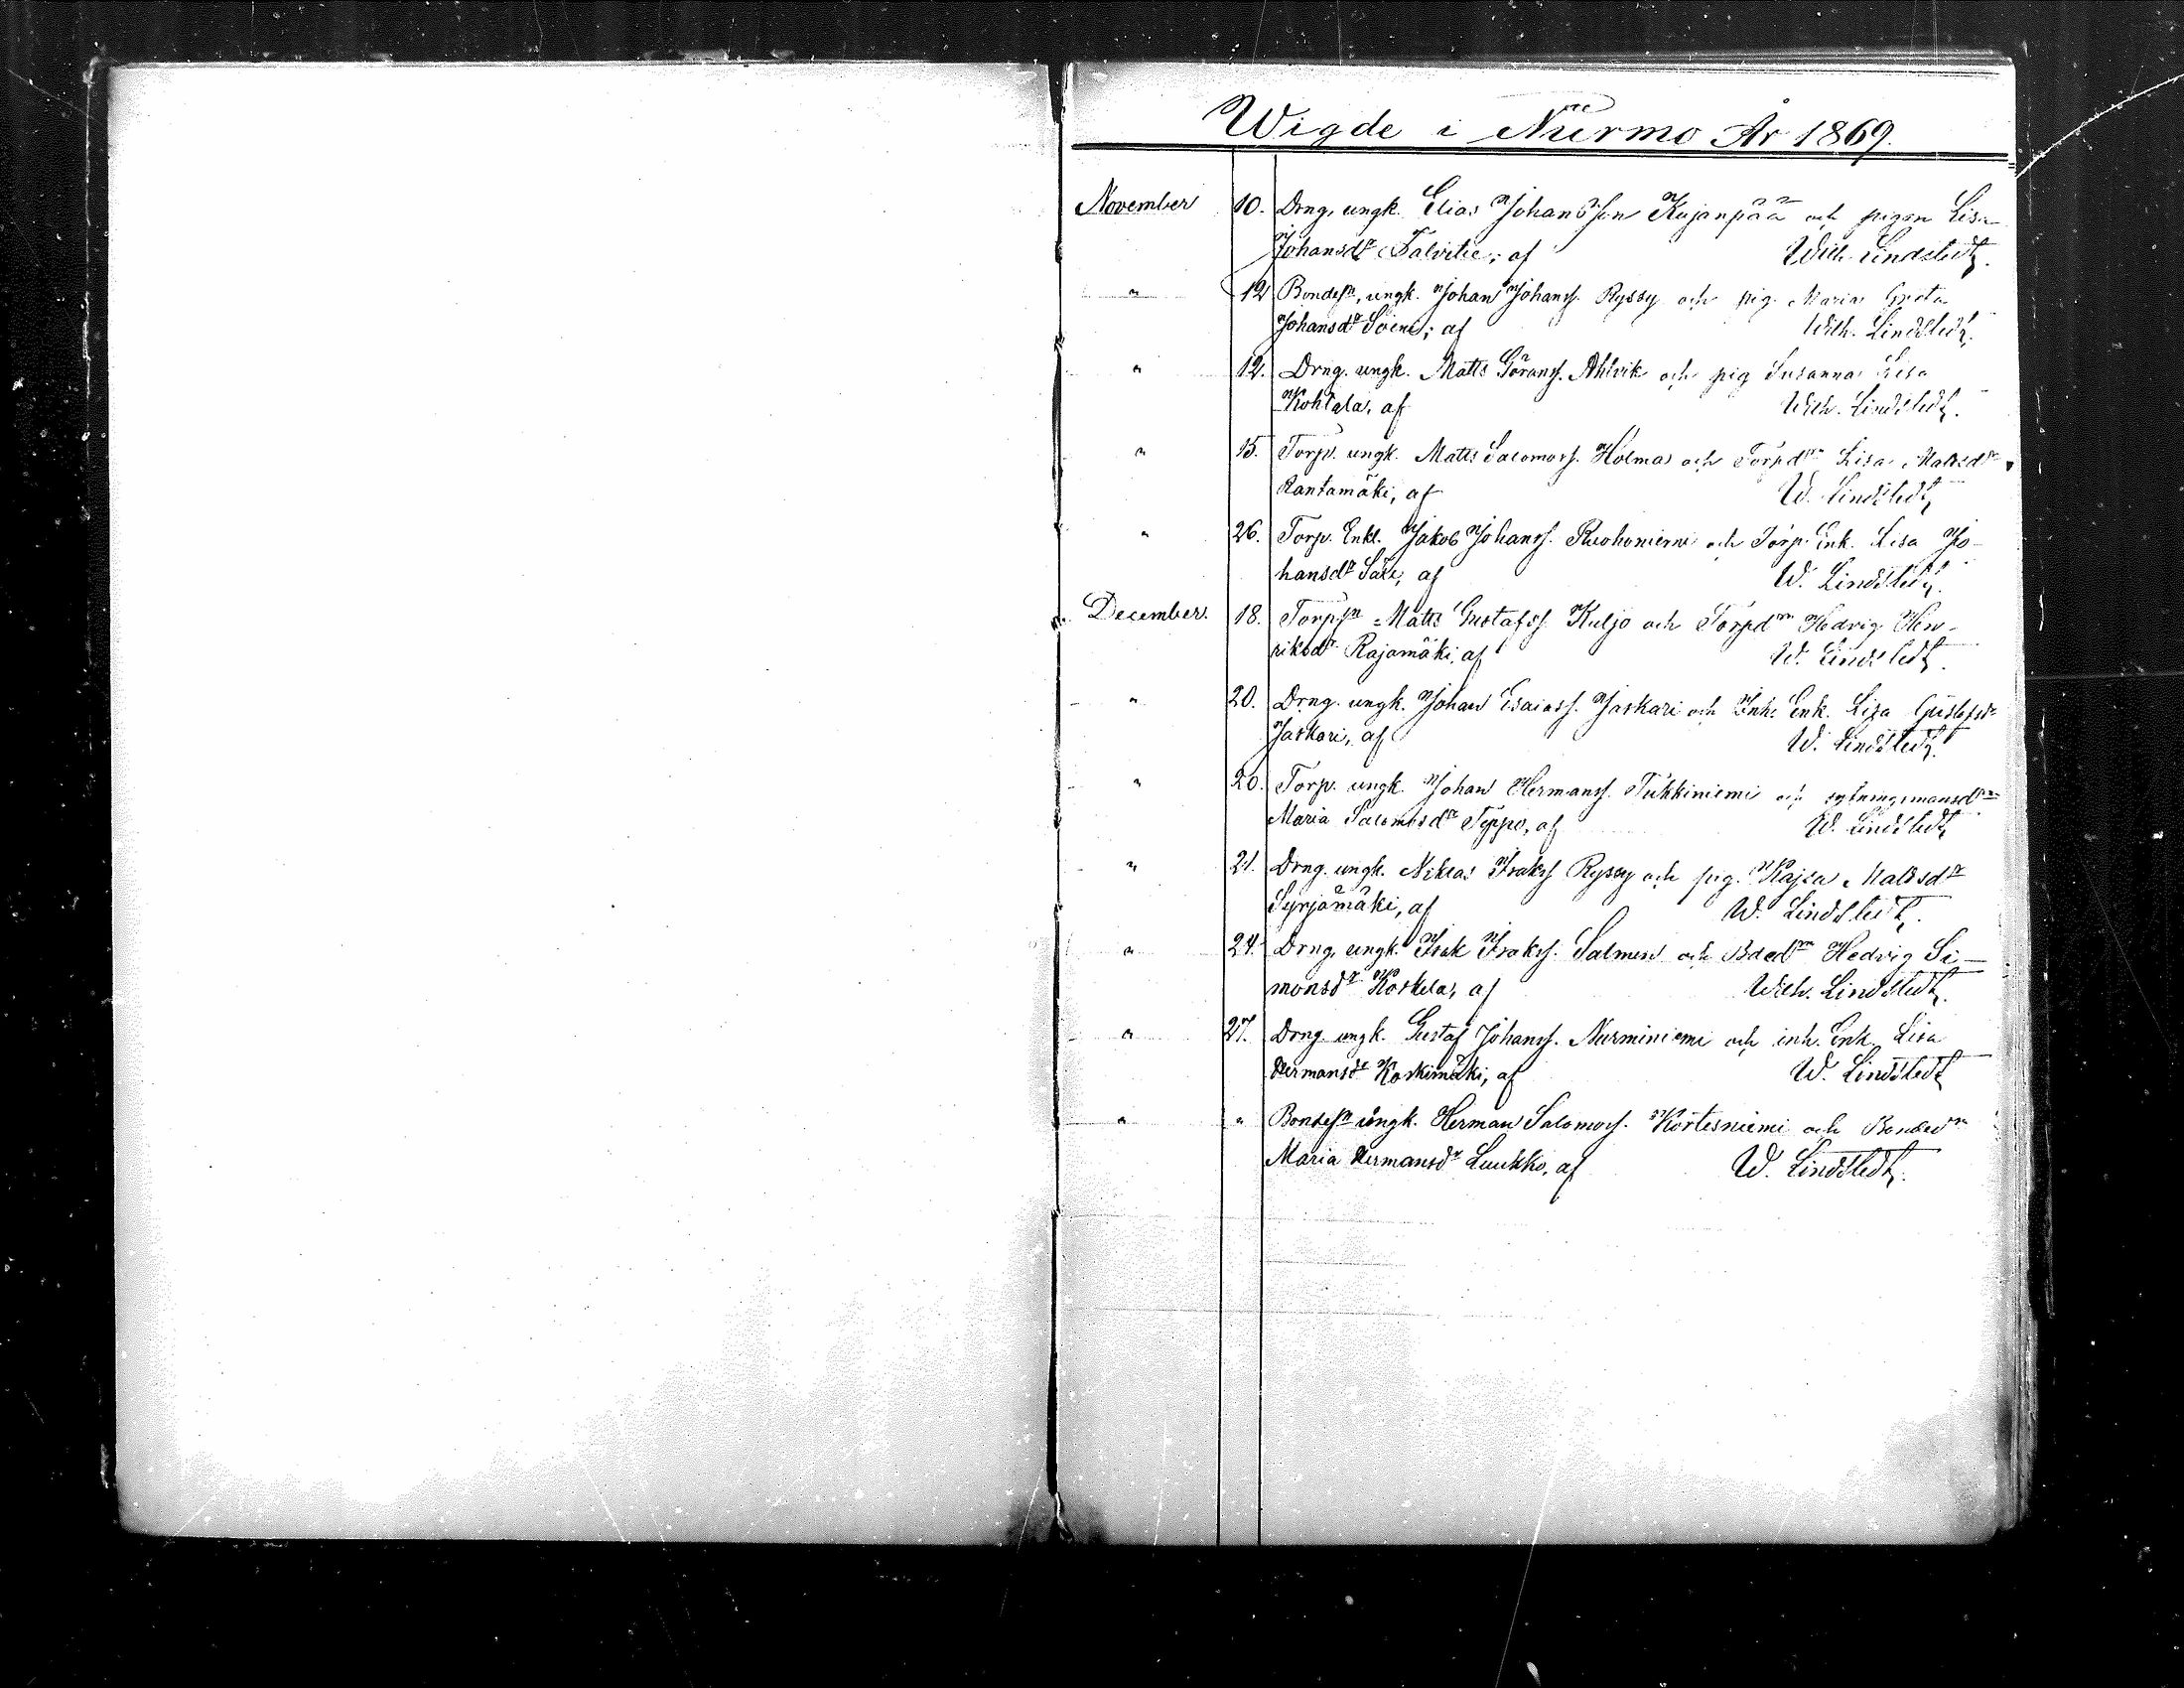 Wigde i Nurmo År 1869.
November 10. Drng. ungk. Elias Johansson Kujanpää och pigan Lisa
Johansdr Talvitie, af Wilh. Lindstedt.
" 12 Bondesn, ungk. Johan Johanss. Ryssy och pig. Maria Greta
Johansdr Soini, af Wilh. Lindstedt.
" 12. Drng. ungk. Matts Göranss. Ahlvik och pig Susanna Lisa
Kohtala, af Wilh. Lindstedt.
" 15. Torp. ungk. Matts Salomonss. Holma och Torpdrn Lisa Mattsdr
Rantamäki, af W. Lindstedt
" 26. Torp. Enkl. Jakob Johanss. Ruohoniemi och Torp. Enk. Lisa Jo-
hansdr af W. Lindstedt.
December. 18. Torpsn Matts Gustafss. Kuljo och Torpdrn Hedvig Hen-
riksdr Rajamäki, af W. Lindstedt.
" 20. Drng. ungk. Johan Esaiass. Jaskari och Inh. Enk. Lisa Gustafsdr
Jaskari, af W. Lindstedt.
" 20. Torp. ungk. Johan Hermanss. Tuhkiniemi och sytningsmansdrn
Maria Salomonsdr Seppo, af W. Lindstedt
" 21. Drng. ungk. Niklas Isakss Ryssy och pig. Kajsa Mattsdr
Syrjämäki, af W. Lindstedt.
" 24. Drng. ungk. Isak Isakss. Salmen och Bdedrn Hedvig Si-
monsdr Koskela, af Wilh. Lindstedt.
" 27. Drng. ungk. Gustaf Johanss. Nurminiemi och inh. Enk. Lisa
Hermansdr Koskimäki, af W. Lindstedt
" " Bondesn ungk. Herman Salomonss. Kortesniemi och Bondedrn
Maria Hermansdr Luukko, af W. Lindstedt.